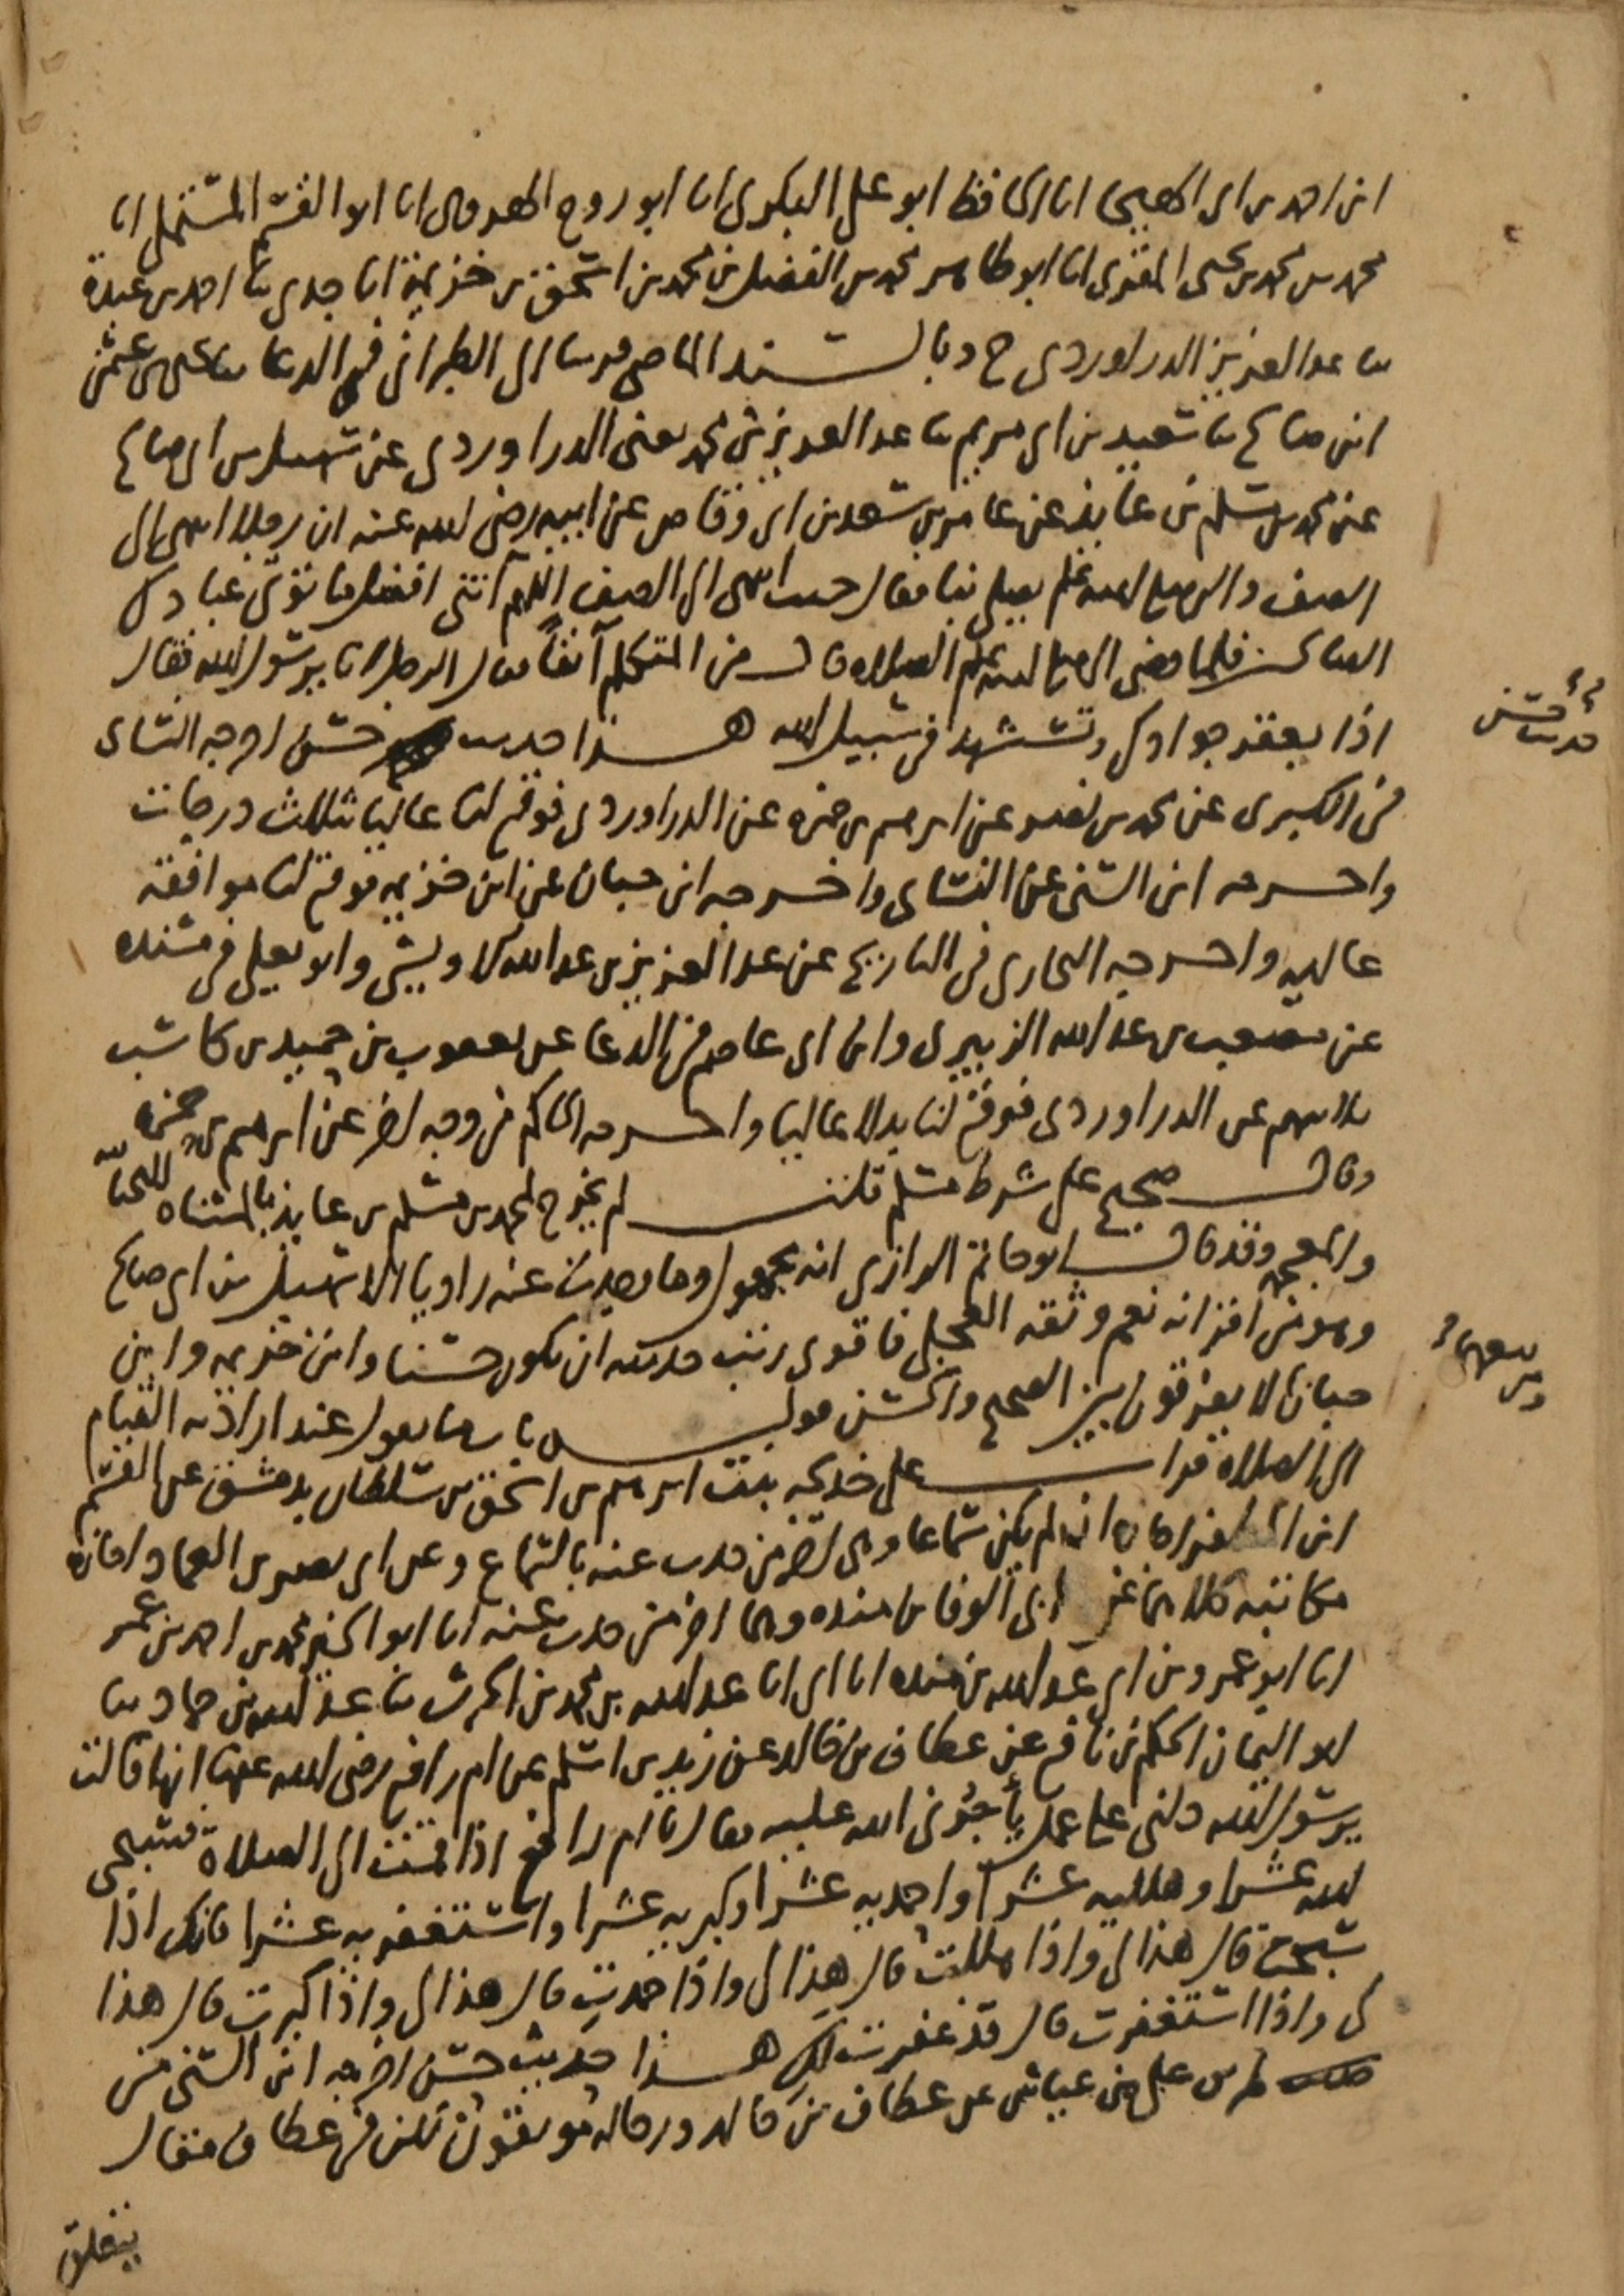 ابن احمد بن ابي الهيجا انا الحافظ ابو علي البكري انا ابو روح الهروي انا ابو القسم المستملي انا
محمد بن محمد بن يحيى المقري انا ابو طاهر محمد بن الفضل بن محمد بن اسحق بن خزيمة انا جدي ثنا احمد بن عبدة
ثنا عبد العزيز الدراوردي ح وبالسند الماضي قريبا الى الطبراني في الدعا ثنا يحيى بن عثمن
ابن صالح ثنا سعيد بن ابي مريم ثنا عبد العزيز بن محمد يعني الدراوردي عن سهيل بن ابي صالح
عن محمد بن مسلم بن عايذ عن عامر بن سعد بن ابي وقاص عن ابيه رضي الله عنه ان رجلا انتهى الى
الصف والنبي صلى الله عليه وسلم يصلي بنا فقال حين انتهى الى الصف اللهم آتني افضل ما تؤتي عبادك
الصالحين فلما قضى النبي صلى الله عليه وسلم الصلاة قال من المتكلم آنفا فقال الرجل انا يرسول الله فقال
اذا يعقر جوادك وتستشهد في سبيل الله هذا حديث حسن اخرجه النساى
في الكبرى عن محمد بن نصر عن ابرهيم بن حمزه عن الدراوردي فوقع لنا عاليا بثلاث درجات
واخرجه ابن السني عن النساى واخرجه ابن حبان عن ابن خزيمه فوقع لنا موافقة
عاليه واخرجه البخاري في التاريخ عن عبد العزيز بن عبد الله الاويسي وابو يعلى في مسنده
عن مصعب بن عبد الله الزبيري وابن ابي عاصم في الدعا عن يعقوب بن حميد بن كاسب
ثلاثتهم عن الدراوردي فوقع لنا بدلا عاليا واخرجه الحاكم من وجه اخر عن ابرهيم بن حمزه
وقال صحيح على شرط مسلم قلت لم يخرج لمحمد بن مسلم بن عايذ بالمثناه التحتانية
والمعجمه وقد قال ابو حاتم الرازي انه مجهول وما وجدت عنه راويا الا سهيل بن ابي صالح
وهو من اقرانه نعم وثقه العجلي فاقوى رتب حديثه ان يكون حسنا وابن خزيمه وابن
حبان لا يفرقون بين الصحيح والحسن قوله باب ما يقول عند ارادته القيام
الى الصلاة قرات على خديجه بنت ابرهيم بن اسحق بن سلطان بدمشق عن القسم
ابن المظفر اجازه ان لم يكن سماعا وهي اخر من حدث عنه بالسماع وعن ابي نصر بن العماد اجازه
مكاتبه كلاهما عن ابي الوفا بن منده وهما اخر من حدث عنه انا ابو الخير محمد بن احمد بن عمر
انا ابو عمرو بن ابي عبد الله بن منده انا ابي انا عبد الله بن محمد بن الحرث ثنا عبد الله بن حماد ثنا
ابو اليمان الحكم بن نافع عن عطاف بن خالد عن زيد بن اسلم عن ام رافع رضي الله عنها انها قالت
يرسول الله دلني على عمل يأجرني الله عليه فقال يا ام رافع اذا قمت الى الصلاة فسبحي
لله عشرا وهلليه عشرا واحمديه عشرا وكبريه عشرا واستغفريه عشرا فانك اذا
سبحت قال هذا لي واذا هللت قال هذا لي واذا حمدت قال هذا لي واذا كبرت قال هذا
لي واذا استغفرت قال قد غفرت لك هذا حديث حسن اخرجه ابن السني من
طريق علي بن عياش عن عطاف بن خالد ورجاله موثقون لكن في عطاف مقال
يتعلق
حديث حسن